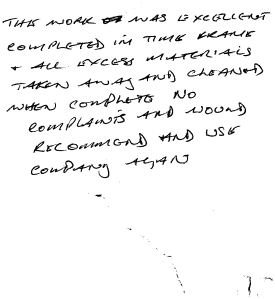 THE WORK WAS EXCELLENT
COMPLETED IN TIME FRAME
+ ALL EXCESS MATERIALS
TAKEN AWAY AND CLEANED
WHEN COMPLETE NO
COMPLAINTS AND WOULD
RECOMMEND AND USE
COMPANY AGAIN